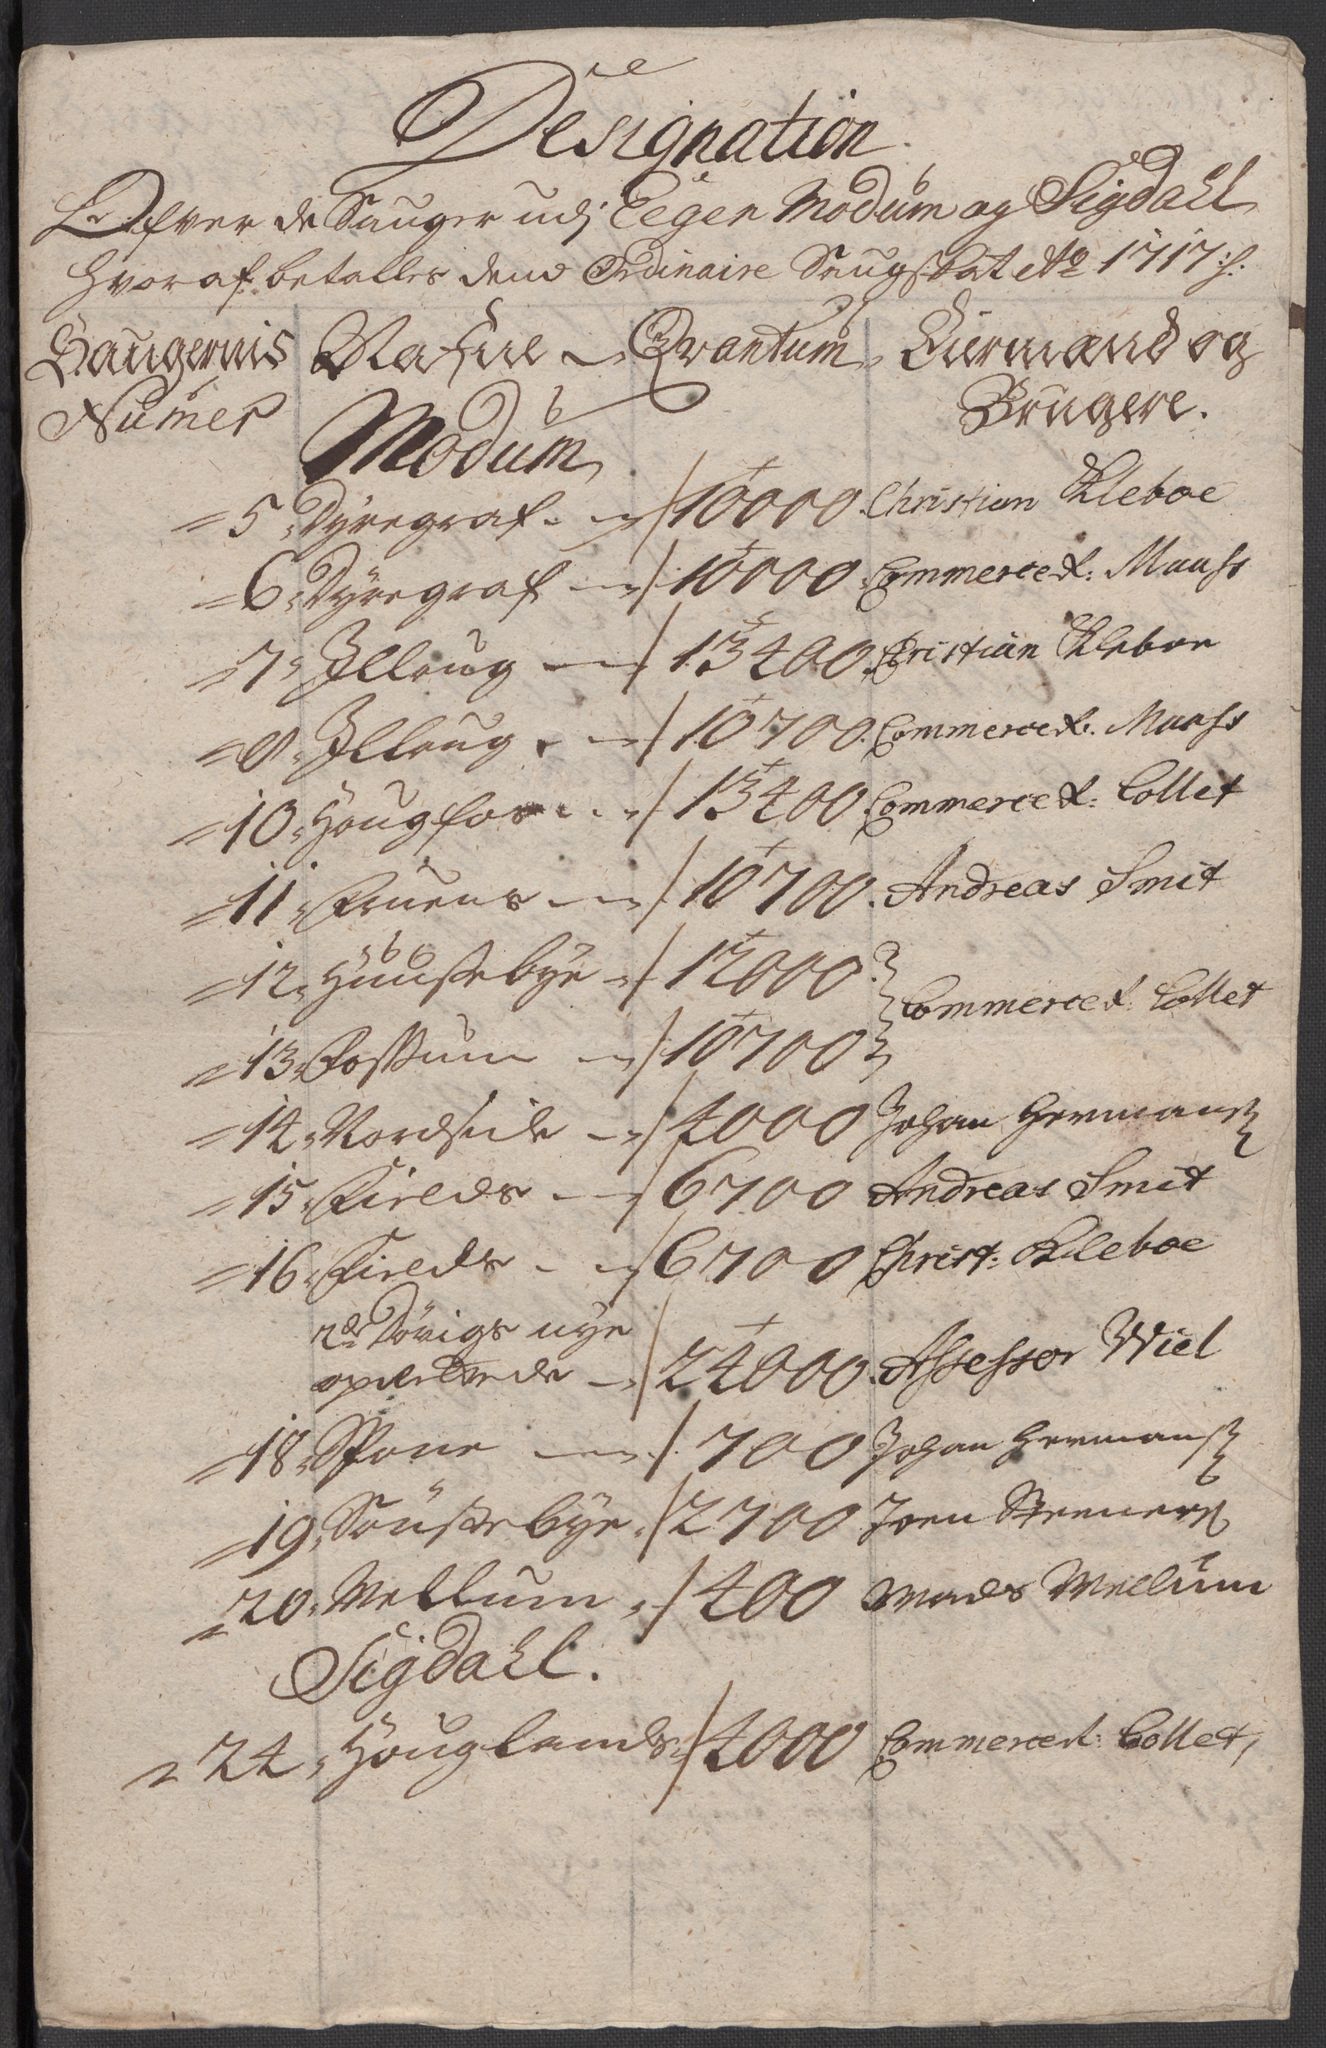 Designation
Ofver de Sauger udj Eëger Modum og Sigdahl
hvoraf betalles dend Ordinaire Saugskat Ao 1717:/:
Saugernis Nafne Qvantum Eiermænd og
Numer Brugere.
Modum
5 Dyregraf 10000 Christian Kleboe
6 Dyregraf 10000 Commerce R: Maass
7 Illoug 13400 Christian Kleboe
8 Illoug 10700 Commerce R: Maass
10 Hougfos 13400 Commerce R: Collet
11 Fruens 10700 Andreas Smit
12 Huussebye 12000
Commerce R: Collet
13 Fossum 10700
14 Nordside 4000 Johan Hermans
15 Fireds 6700 Andreas Smit
16 Fireds 6700 Christ: Kleboe
2de Dövigs nye
24000 Assessor Wiel
18 Spone 700 Johan Hermans
19 Söussebye 2700 Joen
20 Mellum 400 Mads Mellum
Sigdahl.
24 Houglands 4000 Commerce R: Collet